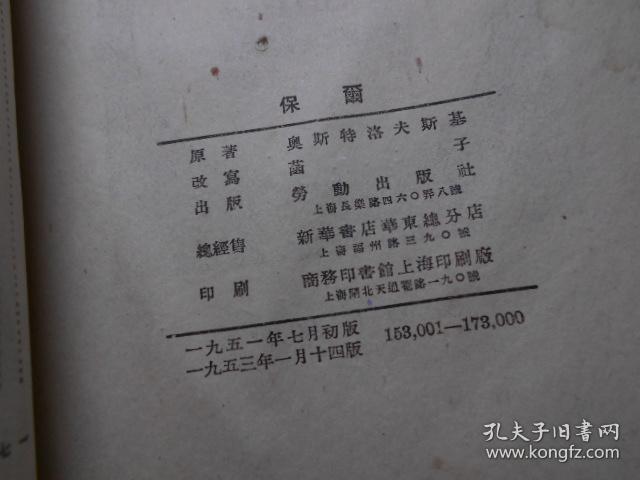 保爾
原著 奧斯特洛夫斯基
改寫 菡子
出版 勞動出版社
上海長樂路四六〇弄八號
總經售 新華書店華東總分店
上海福州路三九〇號
印刷 商務印書館上海印刷廠
上海閘北天通菴路一九〇號
一九五一年七月初版
一九五三年一月十四版 153,001—173,000
孔夫子旧书网
www.kongfz.com